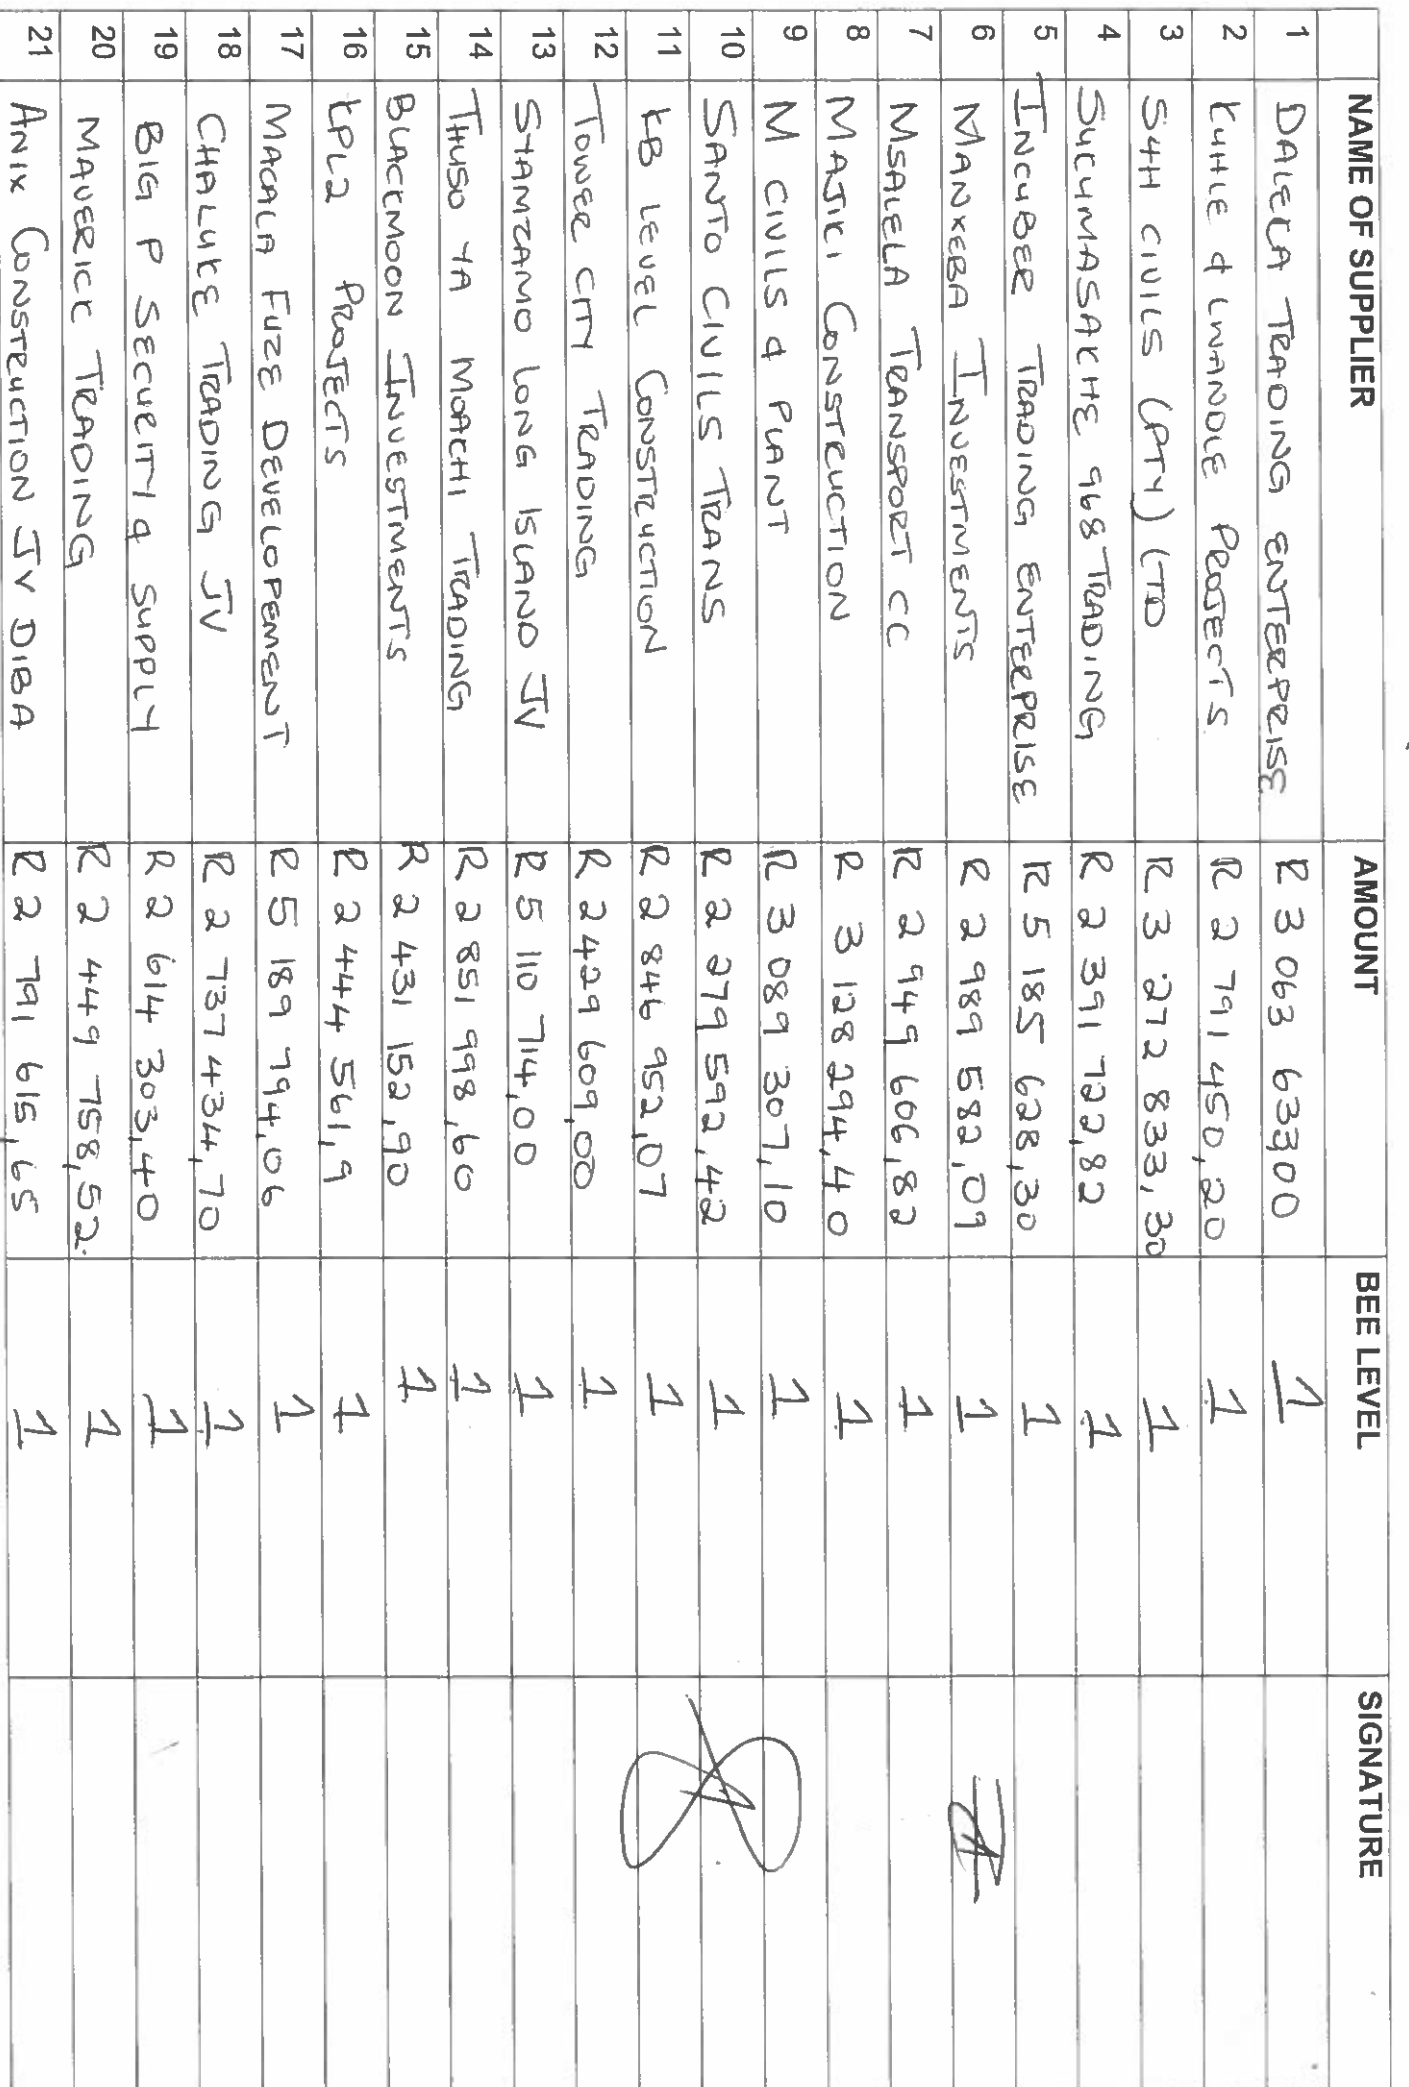 NAME OF SUPPLIER AMOUNT BEE LEVEL SIGNATURE
1 DALEKA TRADING ENTERPRISE R 3 063 63300 1
2 KUHLE & LWANDLE PROJECTS R 2 791 450,20 1
3 S4H CIVILS (PTY) LTD R 3 272 833,30 1
4 SUKUMASAKHE 968 TRADING R 2 391 722,82 1
5 INCUBER TRADING ENTERPRISE R 5 185 628,30 1
6 MANXEBA INVESTMENTS R 2 989 582,09 1
7 MSALELA TRANSPORT CC R 2 949 606,82 1
8 MAJIKI CONSTRUCTION R 3 128 294,40 1
9 M CIVILS & PLANT R 3 089 307,10 1
10 SANTO CIVILS TRANS R 2 279 592,42 1
11 KB LEVEL CONSTRUCTION R 2 846 952,07 1
12 TOWER CITY TRADING R 2 429 609,00 1
13 SIYAMZAMO LONG ISLAND JV R 5 110 714,00 1
14 THUSO YA MORCHI TRADING R 2 851 998,60 1
15 BLACKMOON INVESTMENTS R 2 431 152,90 1
16 KPL2 PROJECTS R 2 444 561,9 1
17 MACALA FUZE DEVELOPEMENT R 5 189 794,06 1
18 CHALUKE TRADING JV R 2 737 434,70 1
19 BIG P SECURITY & SUPPLY R 2 614 303,40 1
20 MAVERICK TRADING R 2 449 758,52 1
21 ANIX CONSTRUCTION JV DIBA R 2 791 615,65 1